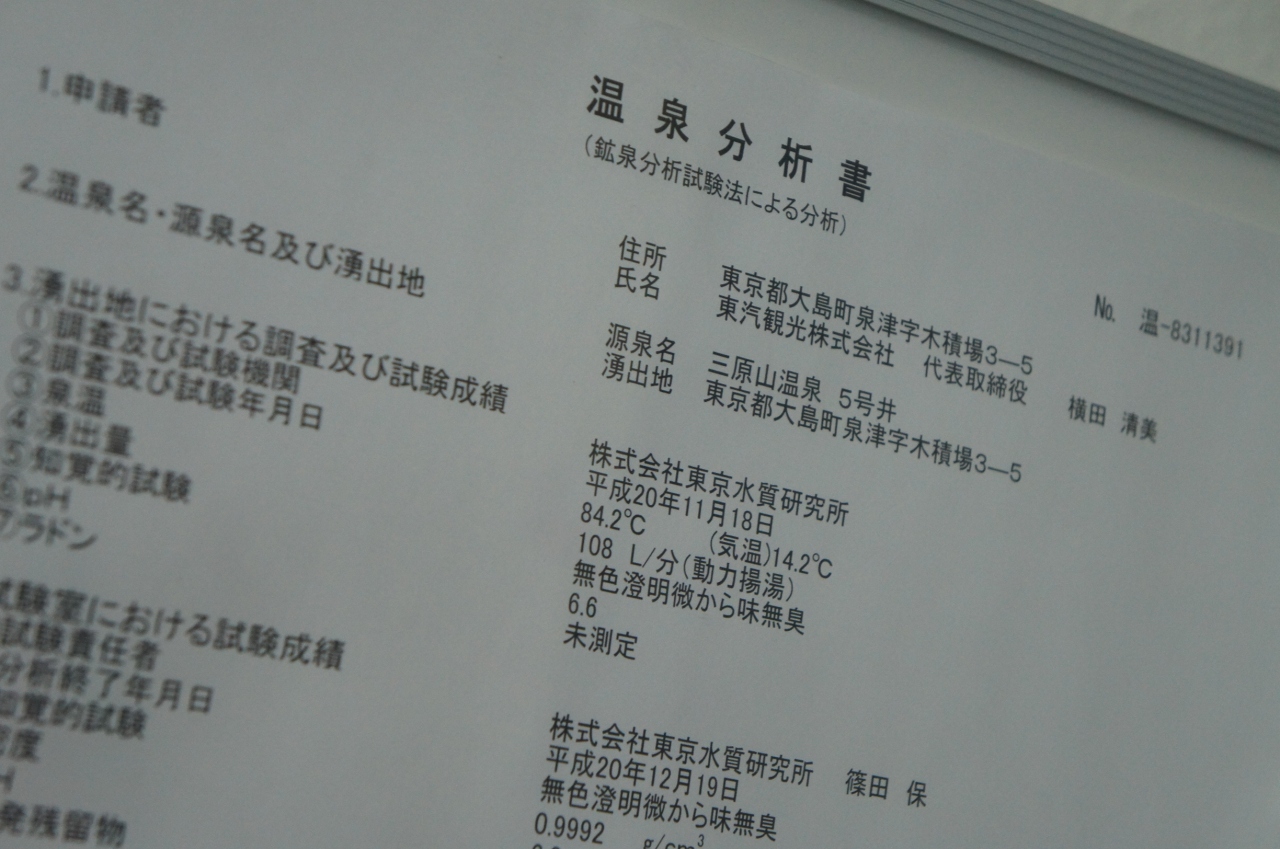 温泉分析書
(鉱泉分析試験法による分析)
No. 温-8311391
1.申請者
住所 東京都大島町泉津字木積場3―5
氏名 東汽観光株式会社 代表取締役 横田 清美
2.温泉名・源泉名及び湧出地
源泉名 三原山温泉 5号井
湧出地 東京都大島町泉津字木積場3―5
3.湧出地における調査及び試験成績
①調査及び試験機関 株式会社東京水質研究所
②調査及び試験年月日 平成20年11月18日
③泉温 84.2℃ (気温)14.2℃
④湧出量 108 L/分(動力揚湯)
⑤知覚的試験 無色澄明微から味無臭
⑥pH 6.6
⑦ラドン 未測定
試験室における試験成績
試験責任者 株式会社東京水質研究所 篠田 保
分析終了年月日 平成20年12月19日
知覚的試験 無色澄明微から味無臭
密度 0.9992 g/cm³
H
発残留物